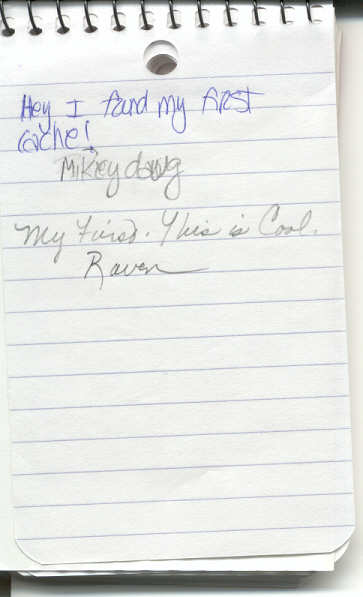 Hey I found my first
cache!
Mikey dawg
My First. This is Cool.
Raven